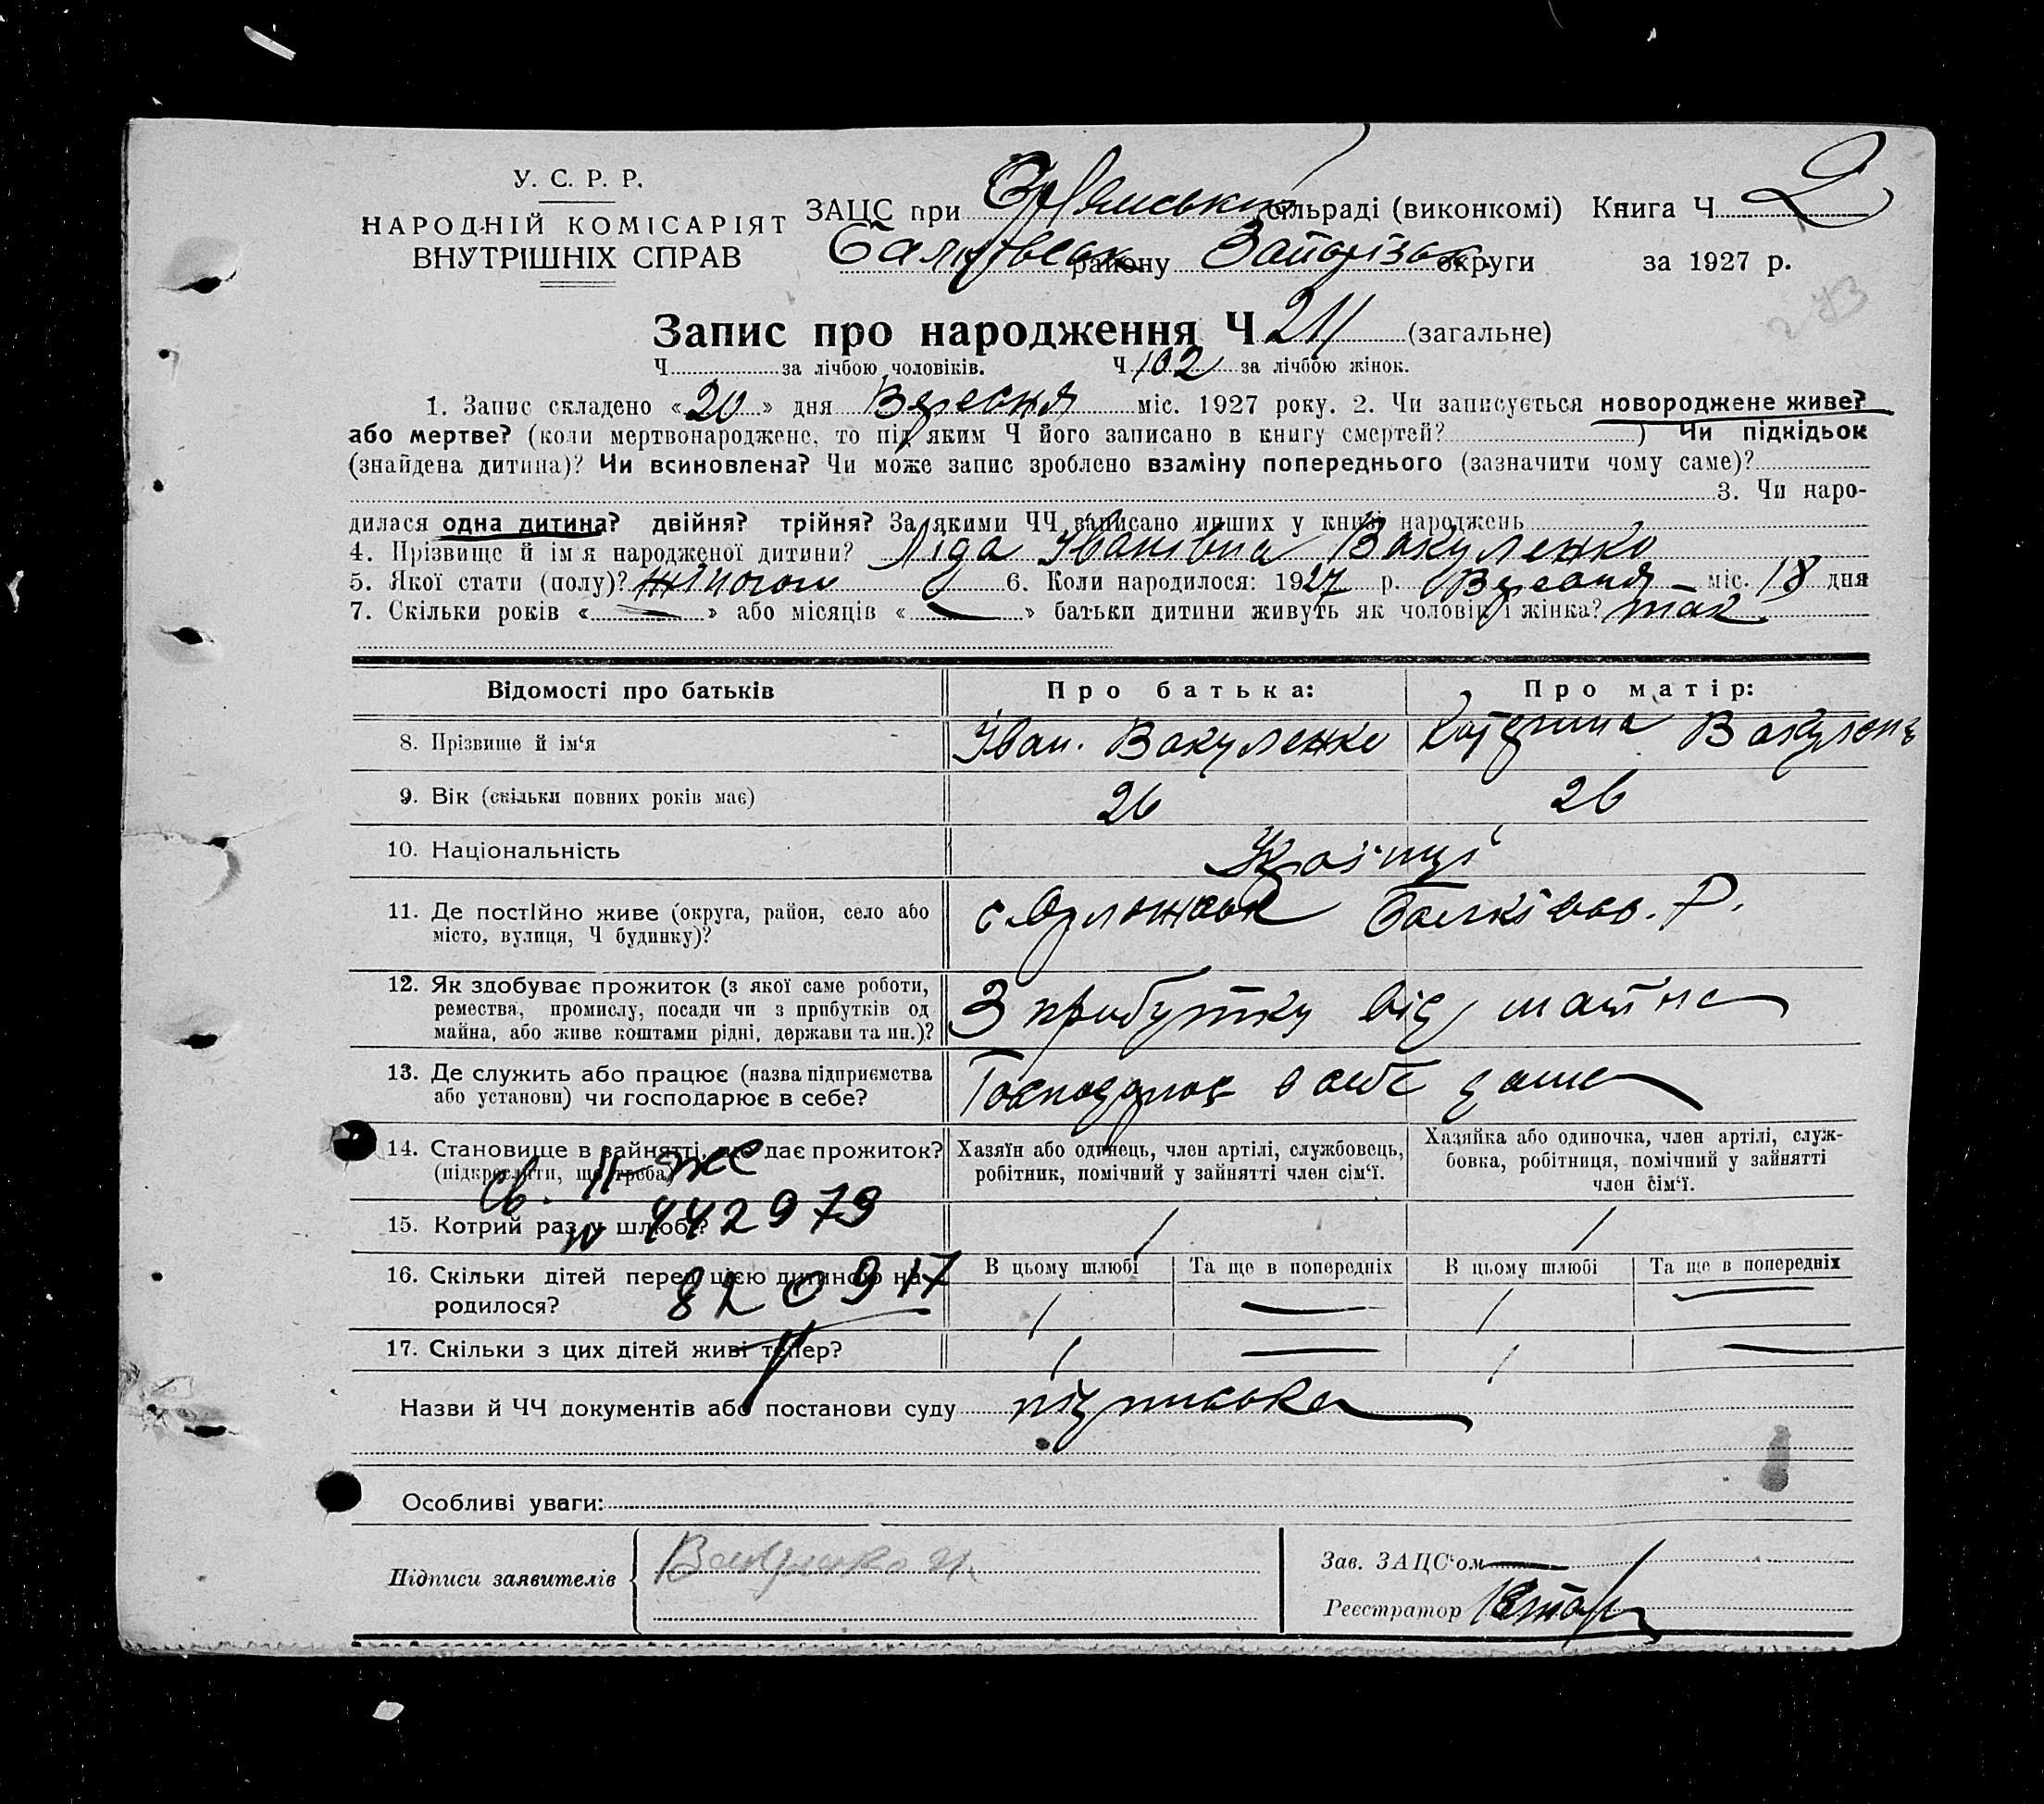 У. С. Р. Р.
НАРОДНІЙ КОМІСАРІЯТ
ВНУТРІШНІХ СПРАВ
ЗАЦС при сільраді (виконкомі) Книга Ч. 2
району Запорізьк. округи за 1927 р.
273
Запис про народження Ч 211 (загальне)
Ч за лічбою чоловіків. Ч 102 за лічбою жінок.
1. Запис складено «20» дня Вересня міс. 1927 року. 2. Чи записується новороджене живе?
або мертве? (коли мертвонароджене, то під яким Ч його записано в книгу смертей? ) Чи підкідьок
(знайдена дитина)? Чи всиновлена? Чи може запис зроблено взаміну попереднього (зазначити чому саме)?
3. Чи наро-
дилася одна дитина? двійня? трійня? За якими ЧЧ записано инших у книзі народжень
4. Прізвище й ім'я народженої дитини? Ліда Іванівна Вакуленко
5. Якої стати (полу)? жіночою 6. Коли народилося: 1927 р. Вересня міс. 18 дня
7. Скільки років « — » або місяців « — » батьки дитини живуть як чоловік і жінка? так
Відомості про батьків Про батька: Про матір:
8. Прізвище й ім'я Іван. Вакуленко Катерина Вакуленко
9. Вік (скільки повних років має) 26 26
10. Національність Українці
11. Де постійно живе (округа, район, село або
місто, вулиця, Ч будинку)? Р.
12. Як здобуває прожиток (з якої саме роботи,
ремества, промислу, посади чи з прибутків од
майна, або живе коштами рідні, держави та ин.)? З прибутку від майна
13. Де служить або працює (назва підприємства
або установи) чи господарює в себе? Господарює в себе дома
14. Становище в зайнятті, що дає прожиток?
(підкреслити, що треба) Хазяїн або одинець, член артілі, службовець,
робітник, помічний у зайнятті член сім'ї.
Хазяйка або одиночка, член артілі, служ-
бовка, робітниця, помічний у зайнятті
член сім'ї.
Св. II ЖС
№ 442979
15. Котрий раз у шлюбі? 1 1
820917
16. Скільки дітей перед цією дитиною на-
родилося? В цьому шлюбі Та ще в попередніх В цьому шлюбі Та ще в попередніх
1 — 1 —
17. Скільки з цих дітей живі тепер? 1 — 1 —
Назви й ЧЧ документів або постанови суду підписька
Особливі уваги:
Підписи заявителів Вакуленко И.
Зав. ЗАЦС'ом —
Реєстратор